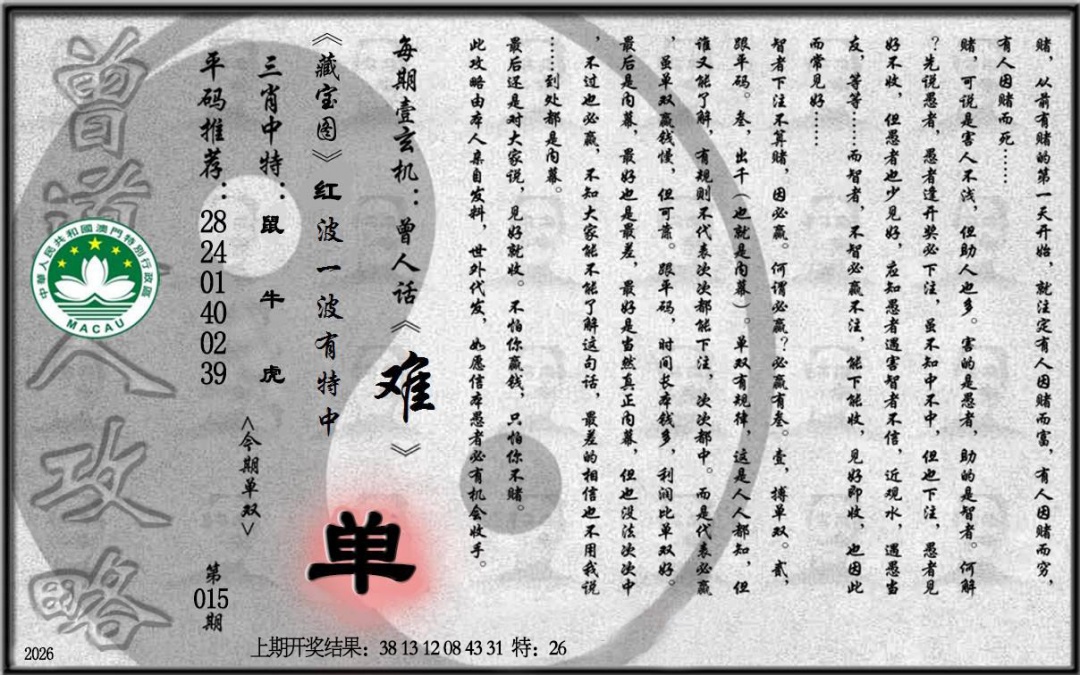 赌，从前有赌的第一天开始，就注定有人因赌而富，有人因赌而穷，
有人因赌而死……
赌，可说是害人不浅，但助人也多。害的是愚者，助的是智者。何解
？先说愚者，愚者逢开奖必下注，虽不知中不中，但也下注，愚者见
好不收，但愚者也少见好，应知愚者遇害智者不信，近观水，遇愚当
友，等等……而智者，不智必赢不注，能下能收，见好即收，也因此
而常见好……
智者下注不算赌，因必赢。何谓必赢？必赢有叁。壹，搏单双。贰，
跟单码。叁，出千（也就是内幕）。单双有规律，这是人人都知，但
谁又能了解，有规则不代表次次都能下注，次次都中。而是代表必赢
，虽单双赢钱慢，但可靠。跟单码，时间长本钱多，利润比单双好。
最后是内幕，最好也是最差，最好是当然真正内幕，但也没法次次中
，不过也必赢，不知大家能不能了解这句话，最差的相信也不用我说
……到处都是内幕。
最后还是对大家说，见好就收。不怕你赢钱，只怕你不赌。
此攻略由本人亲自发料，世外代发，如愿信本愚者必有机会收手。
每期壹玄机：曾人话《难》
《藏宝图》红波一波有特中
单
三肖中特：鼠牛虎
<今期单双>
平码推荐：28 24 01 40 02 39
第015期
曾道人攻略
中華人民共和國澳門特別行政區
MACAU
上期开奖结果：38 13 12 08 43 31 特：26
2026